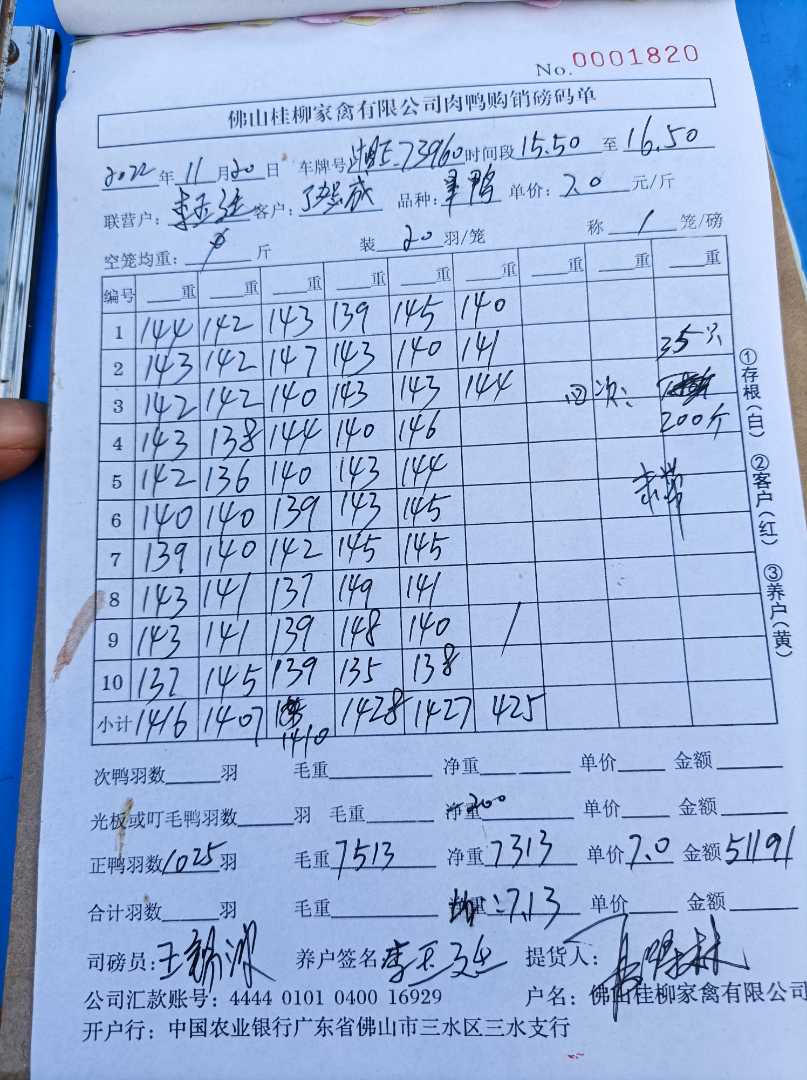 No. 0001820
佛山桂柳家禽有限公司肉鸭购销磅码单
2022年11月20日 车牌号 73960 时间段15.50至16.50
联营户： 客户： 成 品种：鸭 单价：7.0元/斤
空笼均重： 斤 装20羽/笼 称1笼/磅
编号 重 重 重 重 重 重 重 重 重
1 144 142 143 139 145 140
2 143 142 147 143 140 141 35只
3 142 142 140 143 143 144 回次：
4 143 138 144 140 146 200斤
5 142 136 140 143 144
6 140 140 139 143 145
7 139 140 142 145 145
8 143 141 137 149 141
9 143 141 139 148 140 /
10 137 145 139 135 138
小计 1416 1407 1410 1428 1427 425
①存根(白) ②客户(红) ③养户(黄)
次鸭羽数 羽 毛重 净重 单价 金额
光板或叮毛鸭羽数 羽 毛重 净重 200 单价 金额
正鸭羽数1025羽 毛重7513 净重7313 单价7.0 金额51191
合计羽数 羽 毛重 7.13 单价 金额
司磅员：王 养户签名：李 提货人：
公司汇款账号：4444 0101 0400 16929 户名：佛山桂柳家禽有限公司
开户行：中国农业银行广东省佛山市三水区三水支行